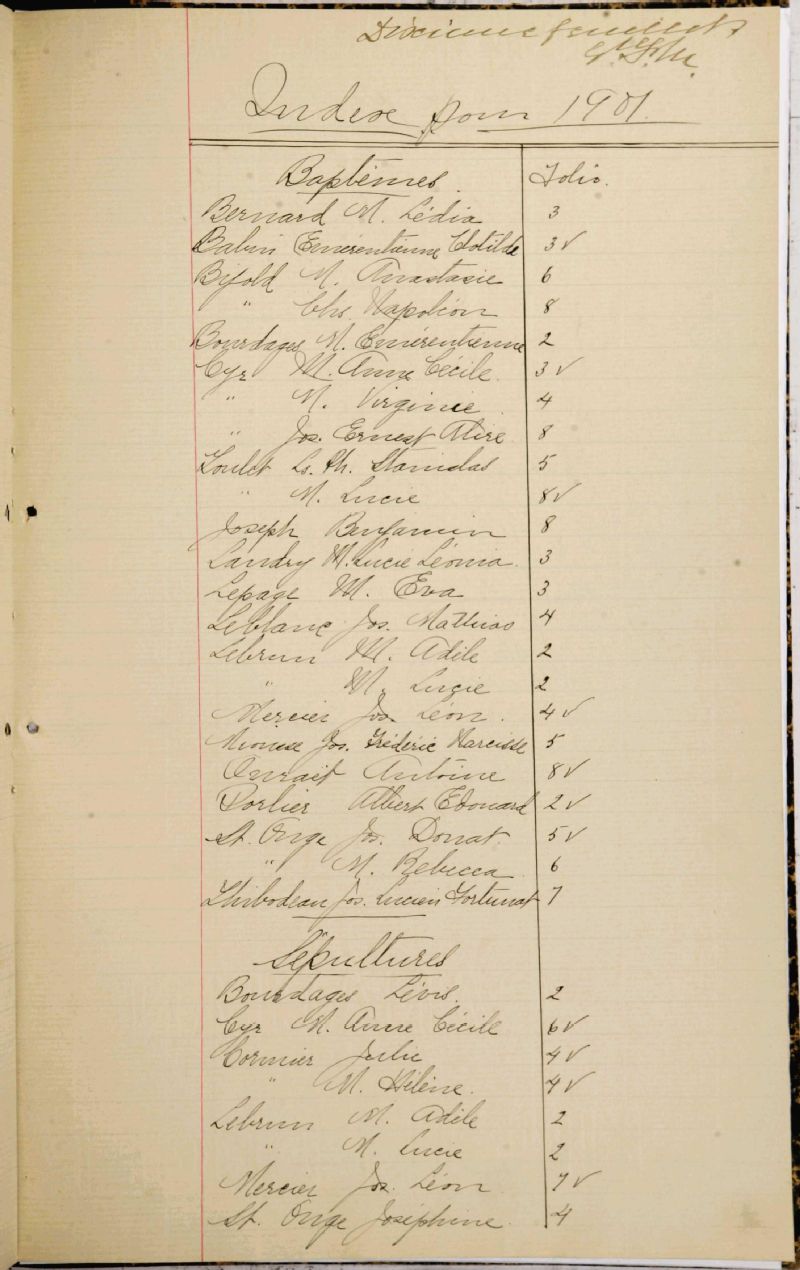 Dixieme feuillet
Index pour 1901.
Baptêmes. Folio.
Bernard M. Lédia 3
Babin Emérentienne Clotilde 3 v
Bijold M. Anastasie 6
" Chs. Napoléon 8
Bourdages M. Emérentienne 2
Cyr M. Anne Cécile. 3 v
" M. Virginie. 4
" Jos. Ernest Alire 8
Loulet Ls. Ph. Stanislas 5
" M. Lucie 8 v
Joseph Benjamin 8
Landry M. Lucie Léonia. 3
Lepage M. Eva 3
Leblanc Jos. Mathias 4
Lebrun M. Adèle 2
" M. Lucie 2
Mercier Jos. Léon. 4 v
Jos. Frédéric Narcisse 5
Antoine 8 v
Porlier Albert Edouard 2 v
St. Onge Jos. Donat. 5 v
" M. Rebecca. 6
Thibodeau Jos. Lucien Fortunat 7
Sépultures
Bourdages Lévis. 2
Cyr M. Anne Cécile 6 v
Cormier Julie 4 v
" M. Hélène. 4 v
Lebrun M. Adèle 2
" M. Lucie 2
Mercier Jos. Léon 7 v
St. Onge Joséphine. 4